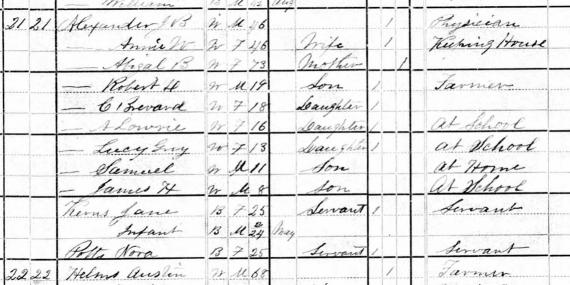 William B M
21 21 Alexander J B W M 46 1 Physician
— Annie W W F 46 Wife 1 Keeping House
— Abigal B W F 73 Mother 1
— Robert H W M 19 Son 1 Farmer
— C Brevard W F 18 Daughter 1
— A Lowrie W F 16 Daughter 1 At School
— Lucy Guy W F 13 Daughter 1 At School
— Samuel W M 11 Son At Home
— James H W M 8 Son At School
Kerns Jane B F 25 Servant 1 Servant
Infant B M May
Potts Nora B F 25 Servant 1 Servant
22 22 Helms Austin W M 68 1 Farmer